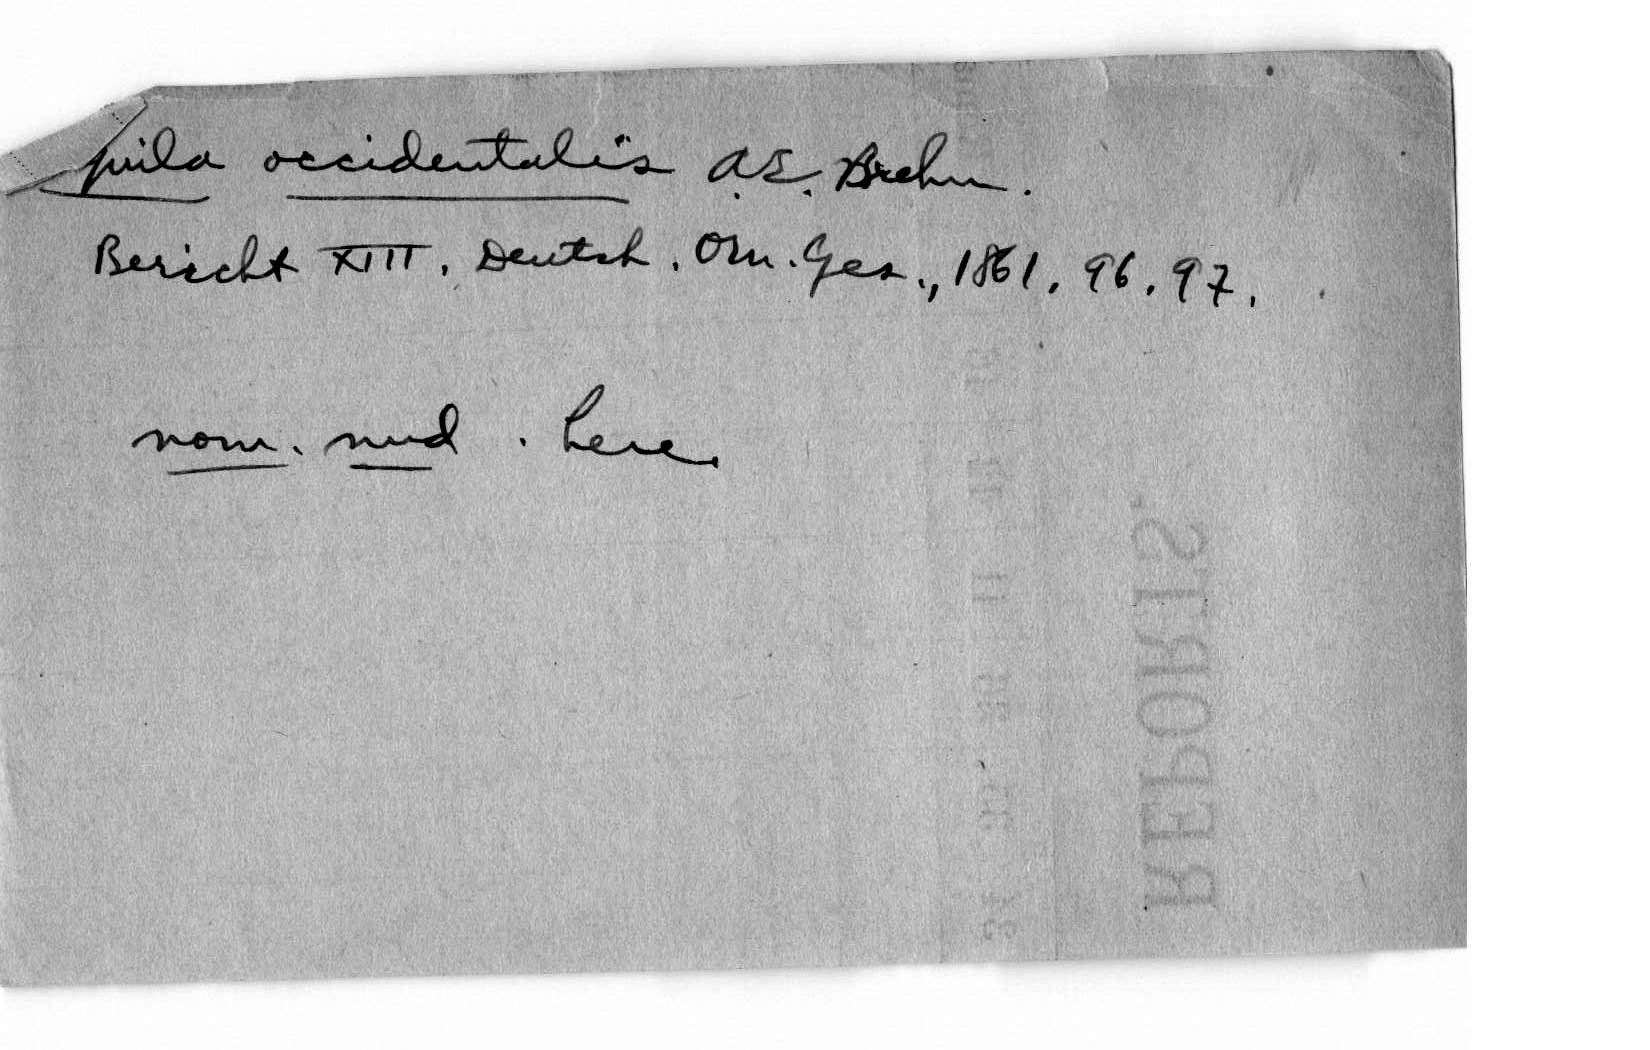 quila occidentalis A.E. Brehm.
Bericht XIII, Deutsh. Orn. Ges., 1861, 96, 97.
nom. nud. here.
REPORTS.